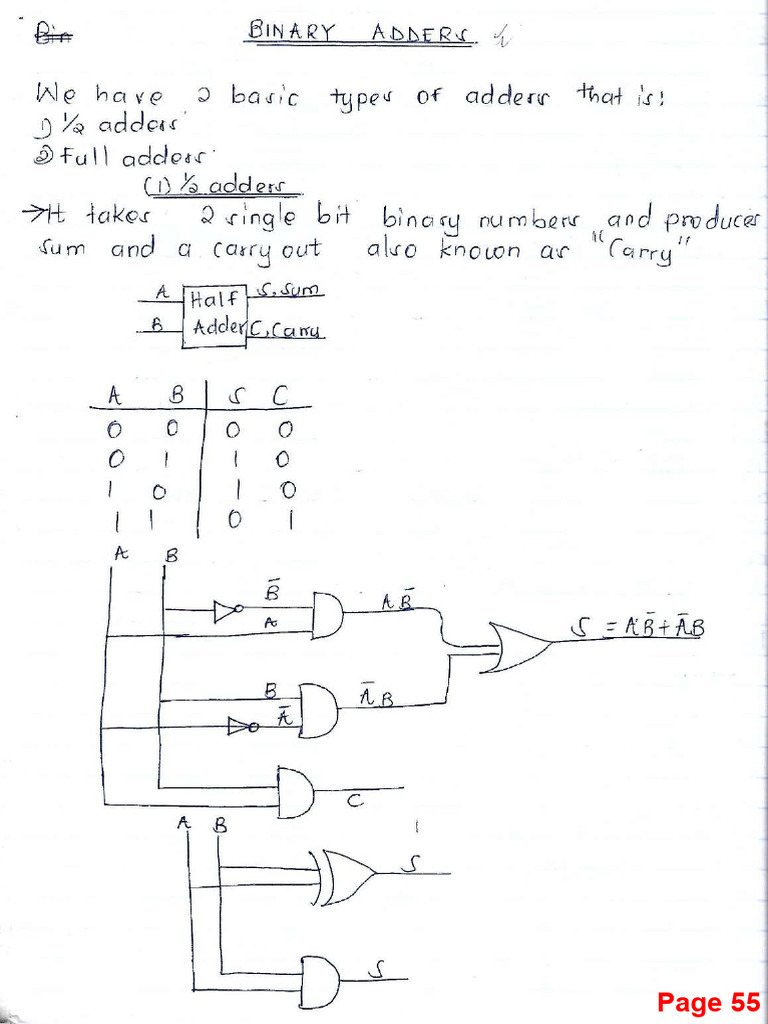 Bin
BINARY ADDERS
We have 2 basic types of adders that is!
1) ½ adders
2) Full adders
(1) ½ adders
→It takes 2 single bit binary numbers and produces
sum and a carry out also known as "Carry"
A Half S, Sum
B Adder C, Carry
A B S C
0 0 0 0
0 1 1 0
1 0 1 0
1 1 0 1
A B
B̅ AB̅
A
S = AB̅ + A̅B
B A̅B
A̅
C
A B
S
S
Page 55